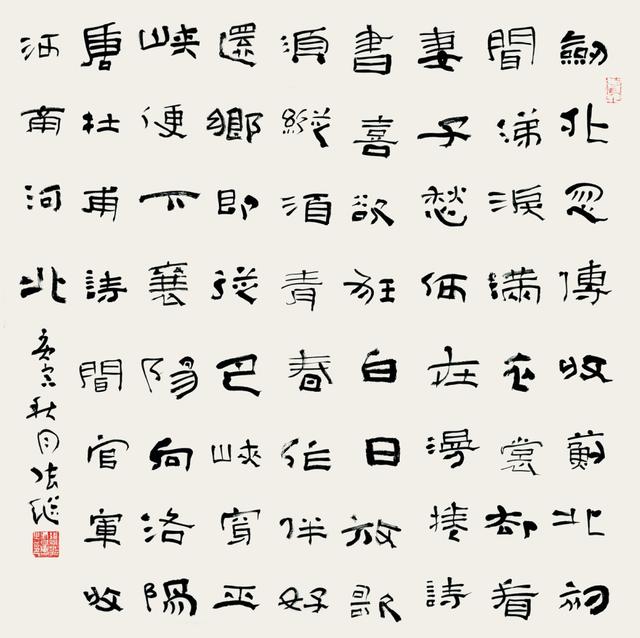 劍北忽傳收薊北初
聞涕淚滿衣裳卻看
妻子愁何在漫捲詩
書喜欲狂白日放歌
須縱酒青春作伴好
還鄉即從巴峽穿巫
峽便下襄陽向洛陽
唐杜甫詩聞官軍收
河南河北 庚寅秋月張继